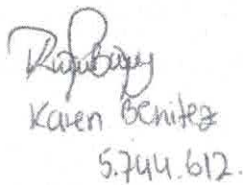 Karen Benitez
5.744.612.